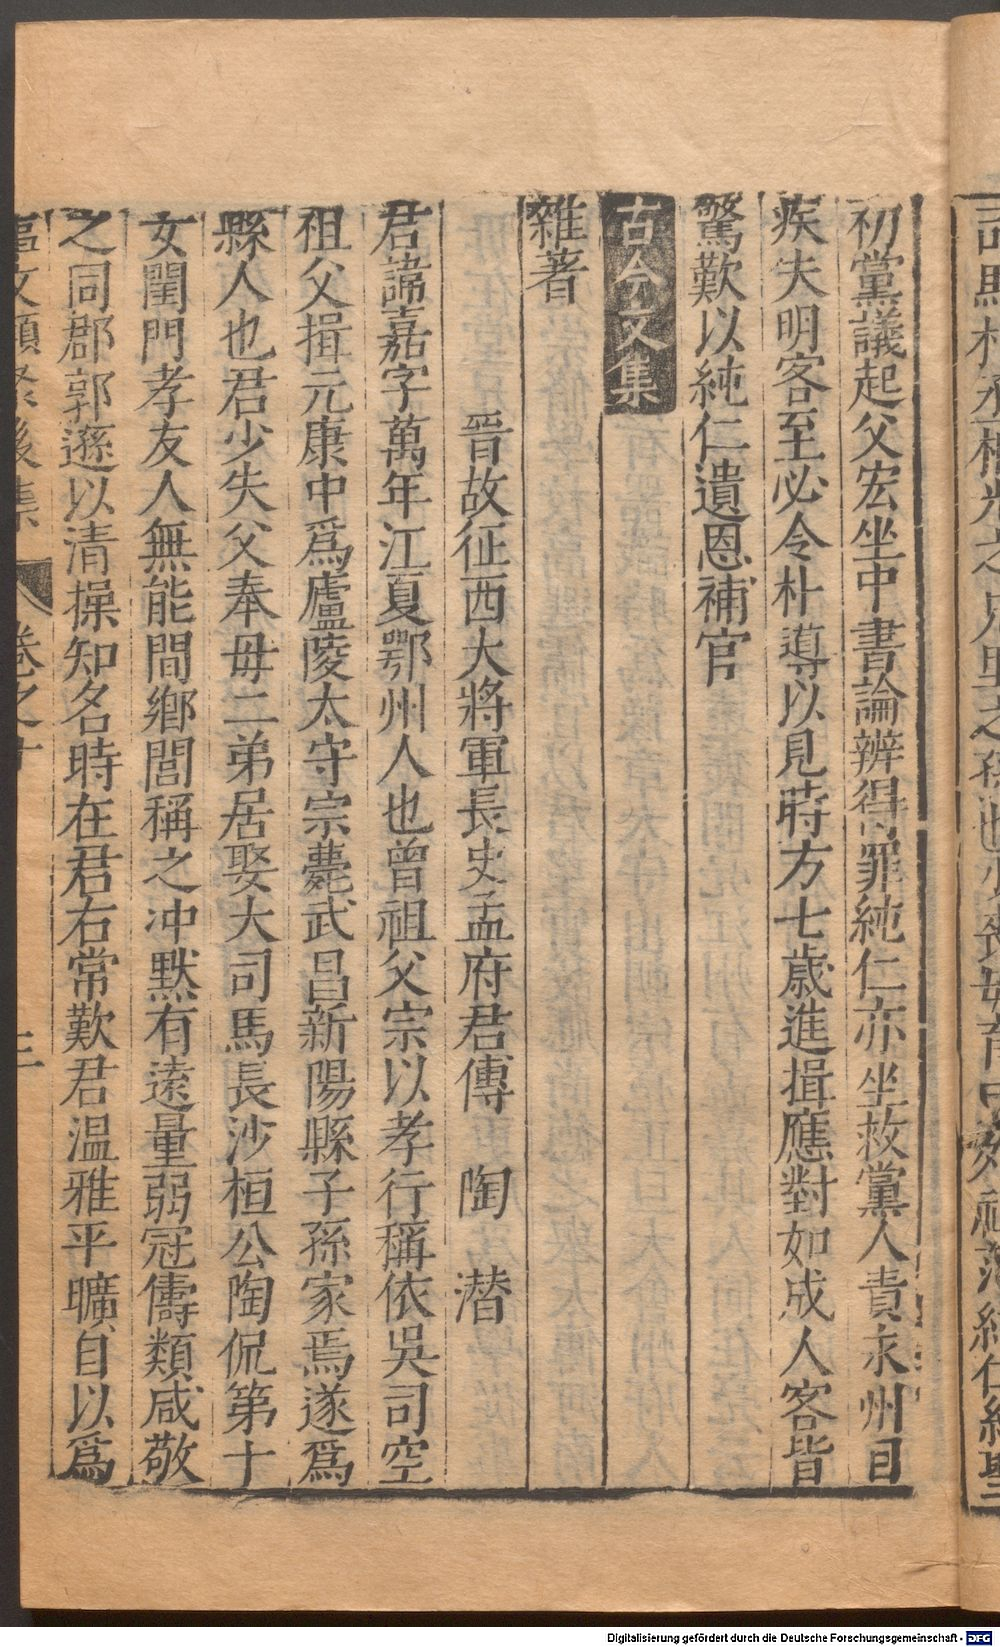 初黨議起父宏坐中書論辨得罪純仁亦坐救黨人責永州目
疾失明客至必令朴導以見時方七歲進揖應對如成人客皆
驚歎以純仁遺恩補官
古今文集
雜著
晉故征西大將軍長史孟府君傳　陶　潛
君諱嘉字萬年江夏鄂州人也曾祖父宗以孝行稱依吳司空
祖父揖元康中爲廬陵太守宗薨武昌新陽縣子孫家焉遂爲
縣人也君少失父奉毋二弟居娶大司馬長沙桓公陶侃第十
女閨門孝友人無能間鄉閭稱之冲黙有遠量弱冠儔類咸敬
之同郡郭遜以清操知名時在君右常歎君温雅平曠自以爲
文類聚後集　卷之十　三
Digitalisierung gefördert durch die Deutsche Forschungsgemeinschaft - DFG